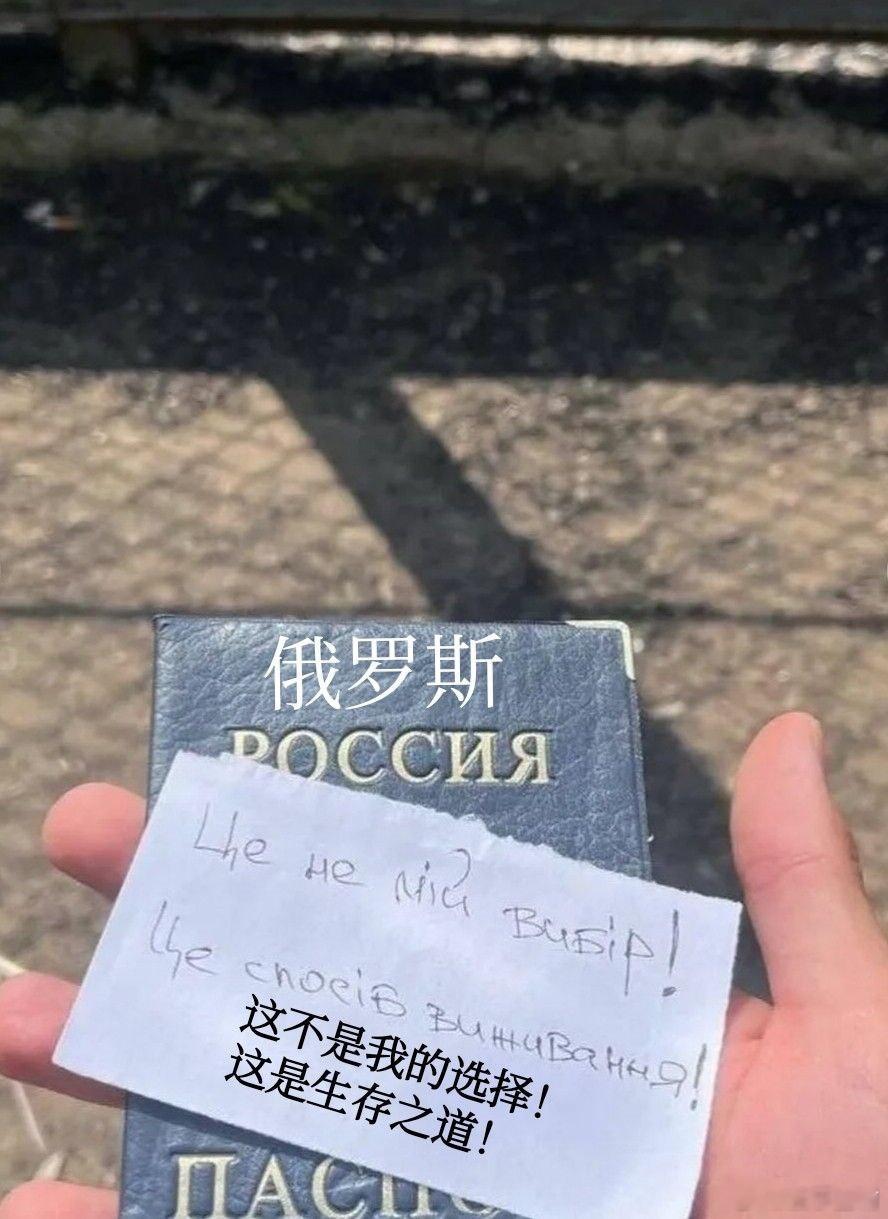 俄罗斯
РОССИЯ
Це не мій вибір!
Це спосіб виживання!
这不是我的选择!
这是生存之道!